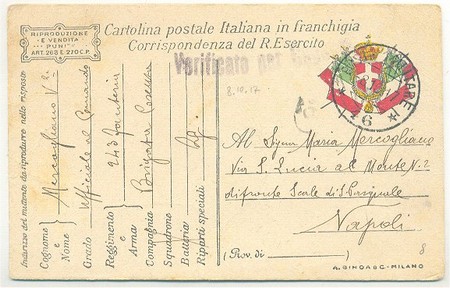 RIPRODUZIONE
E VENDITA
PUNITI
ART. 268 E 270 C.P.
Cartolina postale Italiana in franchigia
Corrispondenza del R. Esercito
Verificato per
8.10.17
MILITARE
6
Indirizzo del mittente da riprodurre nello risposte
Cognome e Nome Mercogliano
Grado Ufficiale al Comando
Reggimento e Arma 243 Fanteria
Compagnia Brigata Cosenza
Squadrone
Batteria
Riparti speciali
Al Signor Maria Mercogliano
Via S. Lucia al Monte N. 2
difronte Scale di S. Pasquale
Napoli
(Prov. di )
8
A. GINOA & C. - MILANO